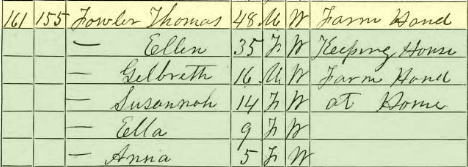 161 155 Fowler Thomas 48 M W Farm Hand
— Ellen 35 F W Keeping House
— Gelbreth 16 M W Farm Hand
— Susannah 14 F W at Home
— Ella 9 F W
— Anna 5 F W